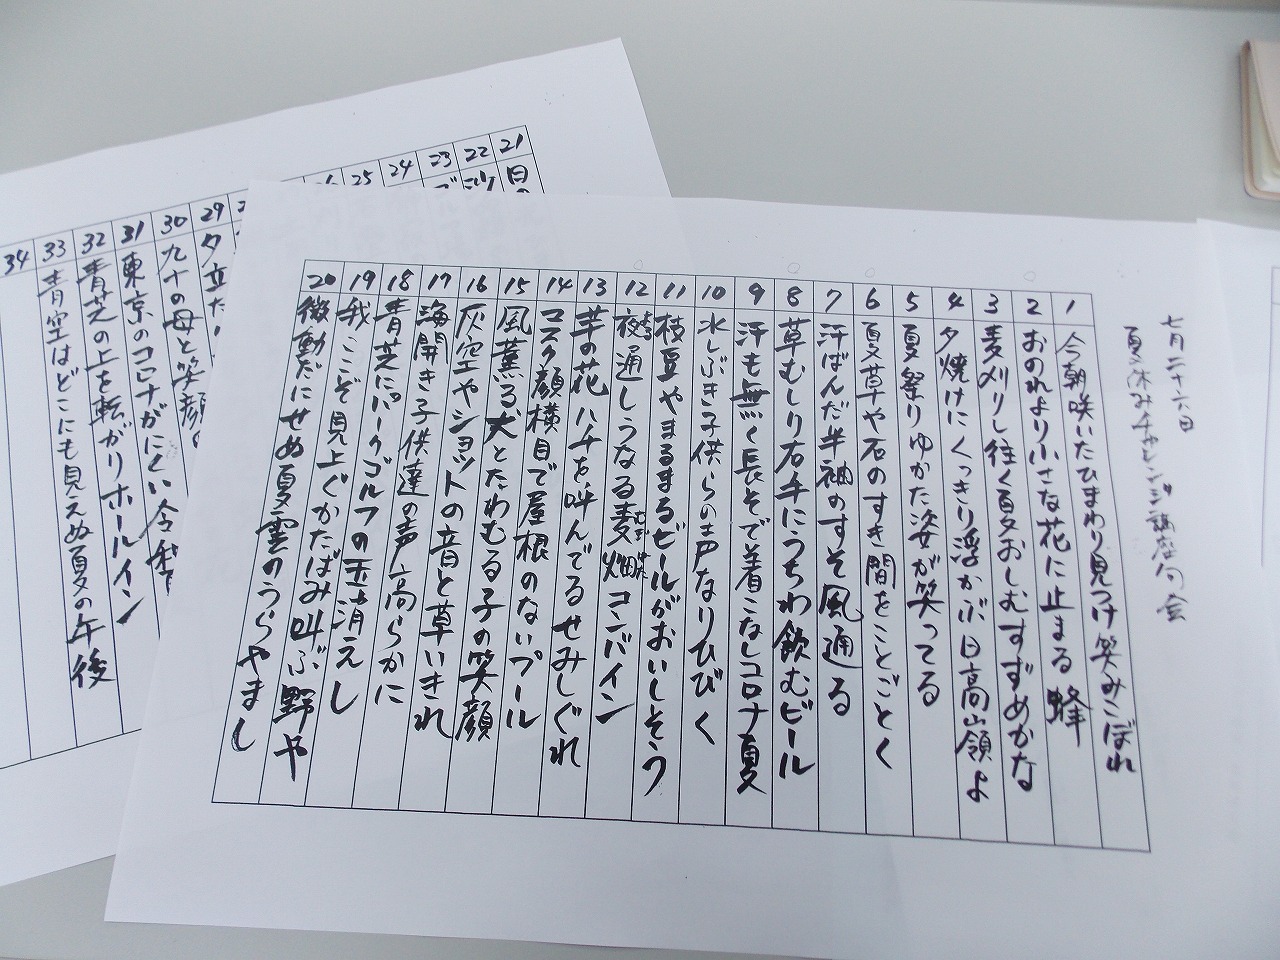 七月二十六日
夏休みチャレンジ講座句会
1 今朝咲いたひまわり見つけ笑みこぼれ
2 おのれより小さな花に止まる蜂
3 麦刈りし往く夏おしむすずめかな
4 夕焼けにくっきり浮かぶ日高山領よ
5 夏祭りゆかた姿が笑ってる
6 夏草や石のすき間をことごとく
7 汗ばんだ半袖のすそ風通る
8 草むしり右手にうちわ飲むビール
9 汗も無く長そで着こなしコロナ夏
10 水しぶき子供らの声なりひびく
11 枝豆やまるまるビールがおいしそう
12 夜通しうなる麦畑コンバイン
13 芋の花ハチを呼んでるせみしぐれ
14 マスク顔横目で屋根のないプール
15 風薫る犬とたわむる子の笑顔
16 灰空やショットの音と草いきれ
17 海開き子供達の声高らかに
18 青芝にパークゴルフの玉消えし
19 我ここぞ見上ぐかたばみ叫ぶ野や
20 微動だにせぬ夏雲のうらやまし
21 日
22
23
24
25
29 夕立
30 九十の母と笑顔
31 東京のコロナがにくい令和
32 青芝の上を転がりホールイン
33 青空はどこにも見えぬ夏の午後
34